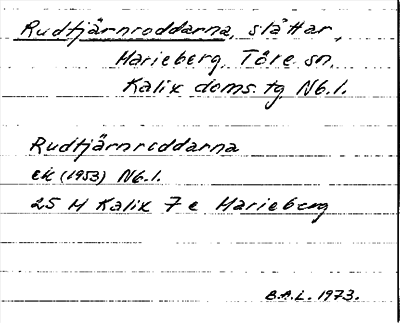 Rudtjärnroddarna, slåttar,
Marieberg. Töre sn.
Kalix doms.tg. Nb.l.
Rudtjärnroddarna
ek (1953) Nb.l.
25 M Kalix 7 e Marieberg
B.A.L. 1973.